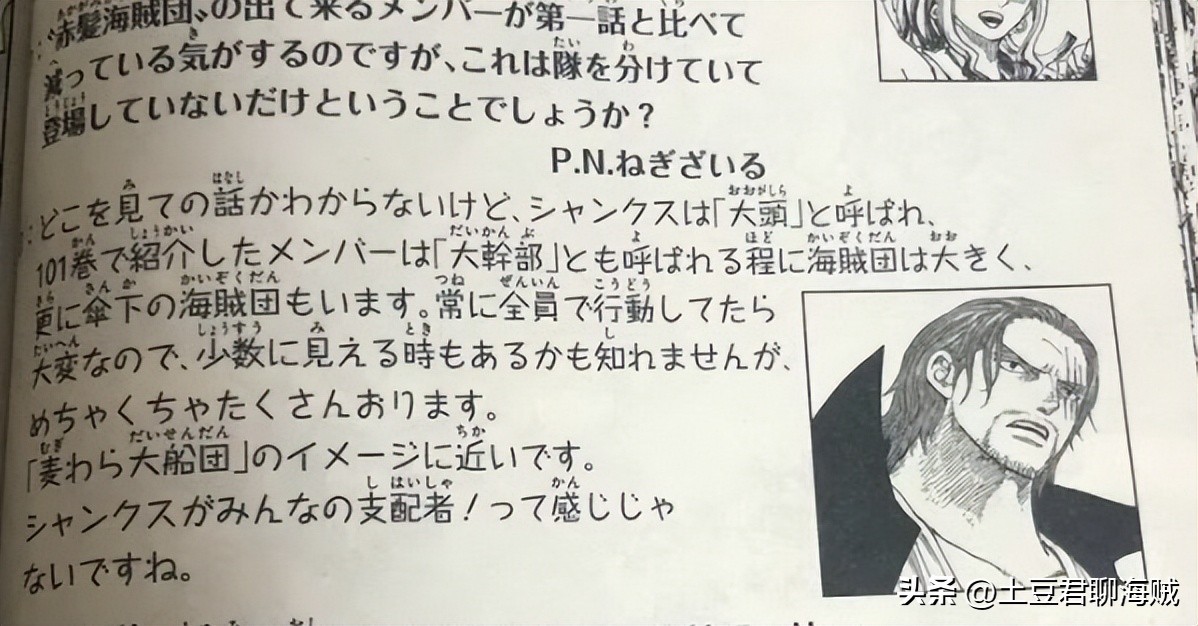 :〝赤髪海賊団〟の出て来るメンバーが第一話と比べて
減っている気がするのですが、これは隊を分けていて
登場していないだけということでしょうか？
P.N.ねぎざいる
:どこを見ての話かわからないけど、シャンクスは「大頭」と呼ばれ、
101巻で紹介したメンバーは「大幹部」とも呼ばれる程に海賊団は大きく、
更に傘下の海賊団もいます。常に全員で行動してたら
大変なので、少数に見える時もあるかも知れませんが、
めちゃくちゃたくさんおります。
「麦わら大船団」のイメージに近いです。
シャンクスがみんなの支配者！って感じじゃ
ないですね。
头条 @土豆君聊海贼